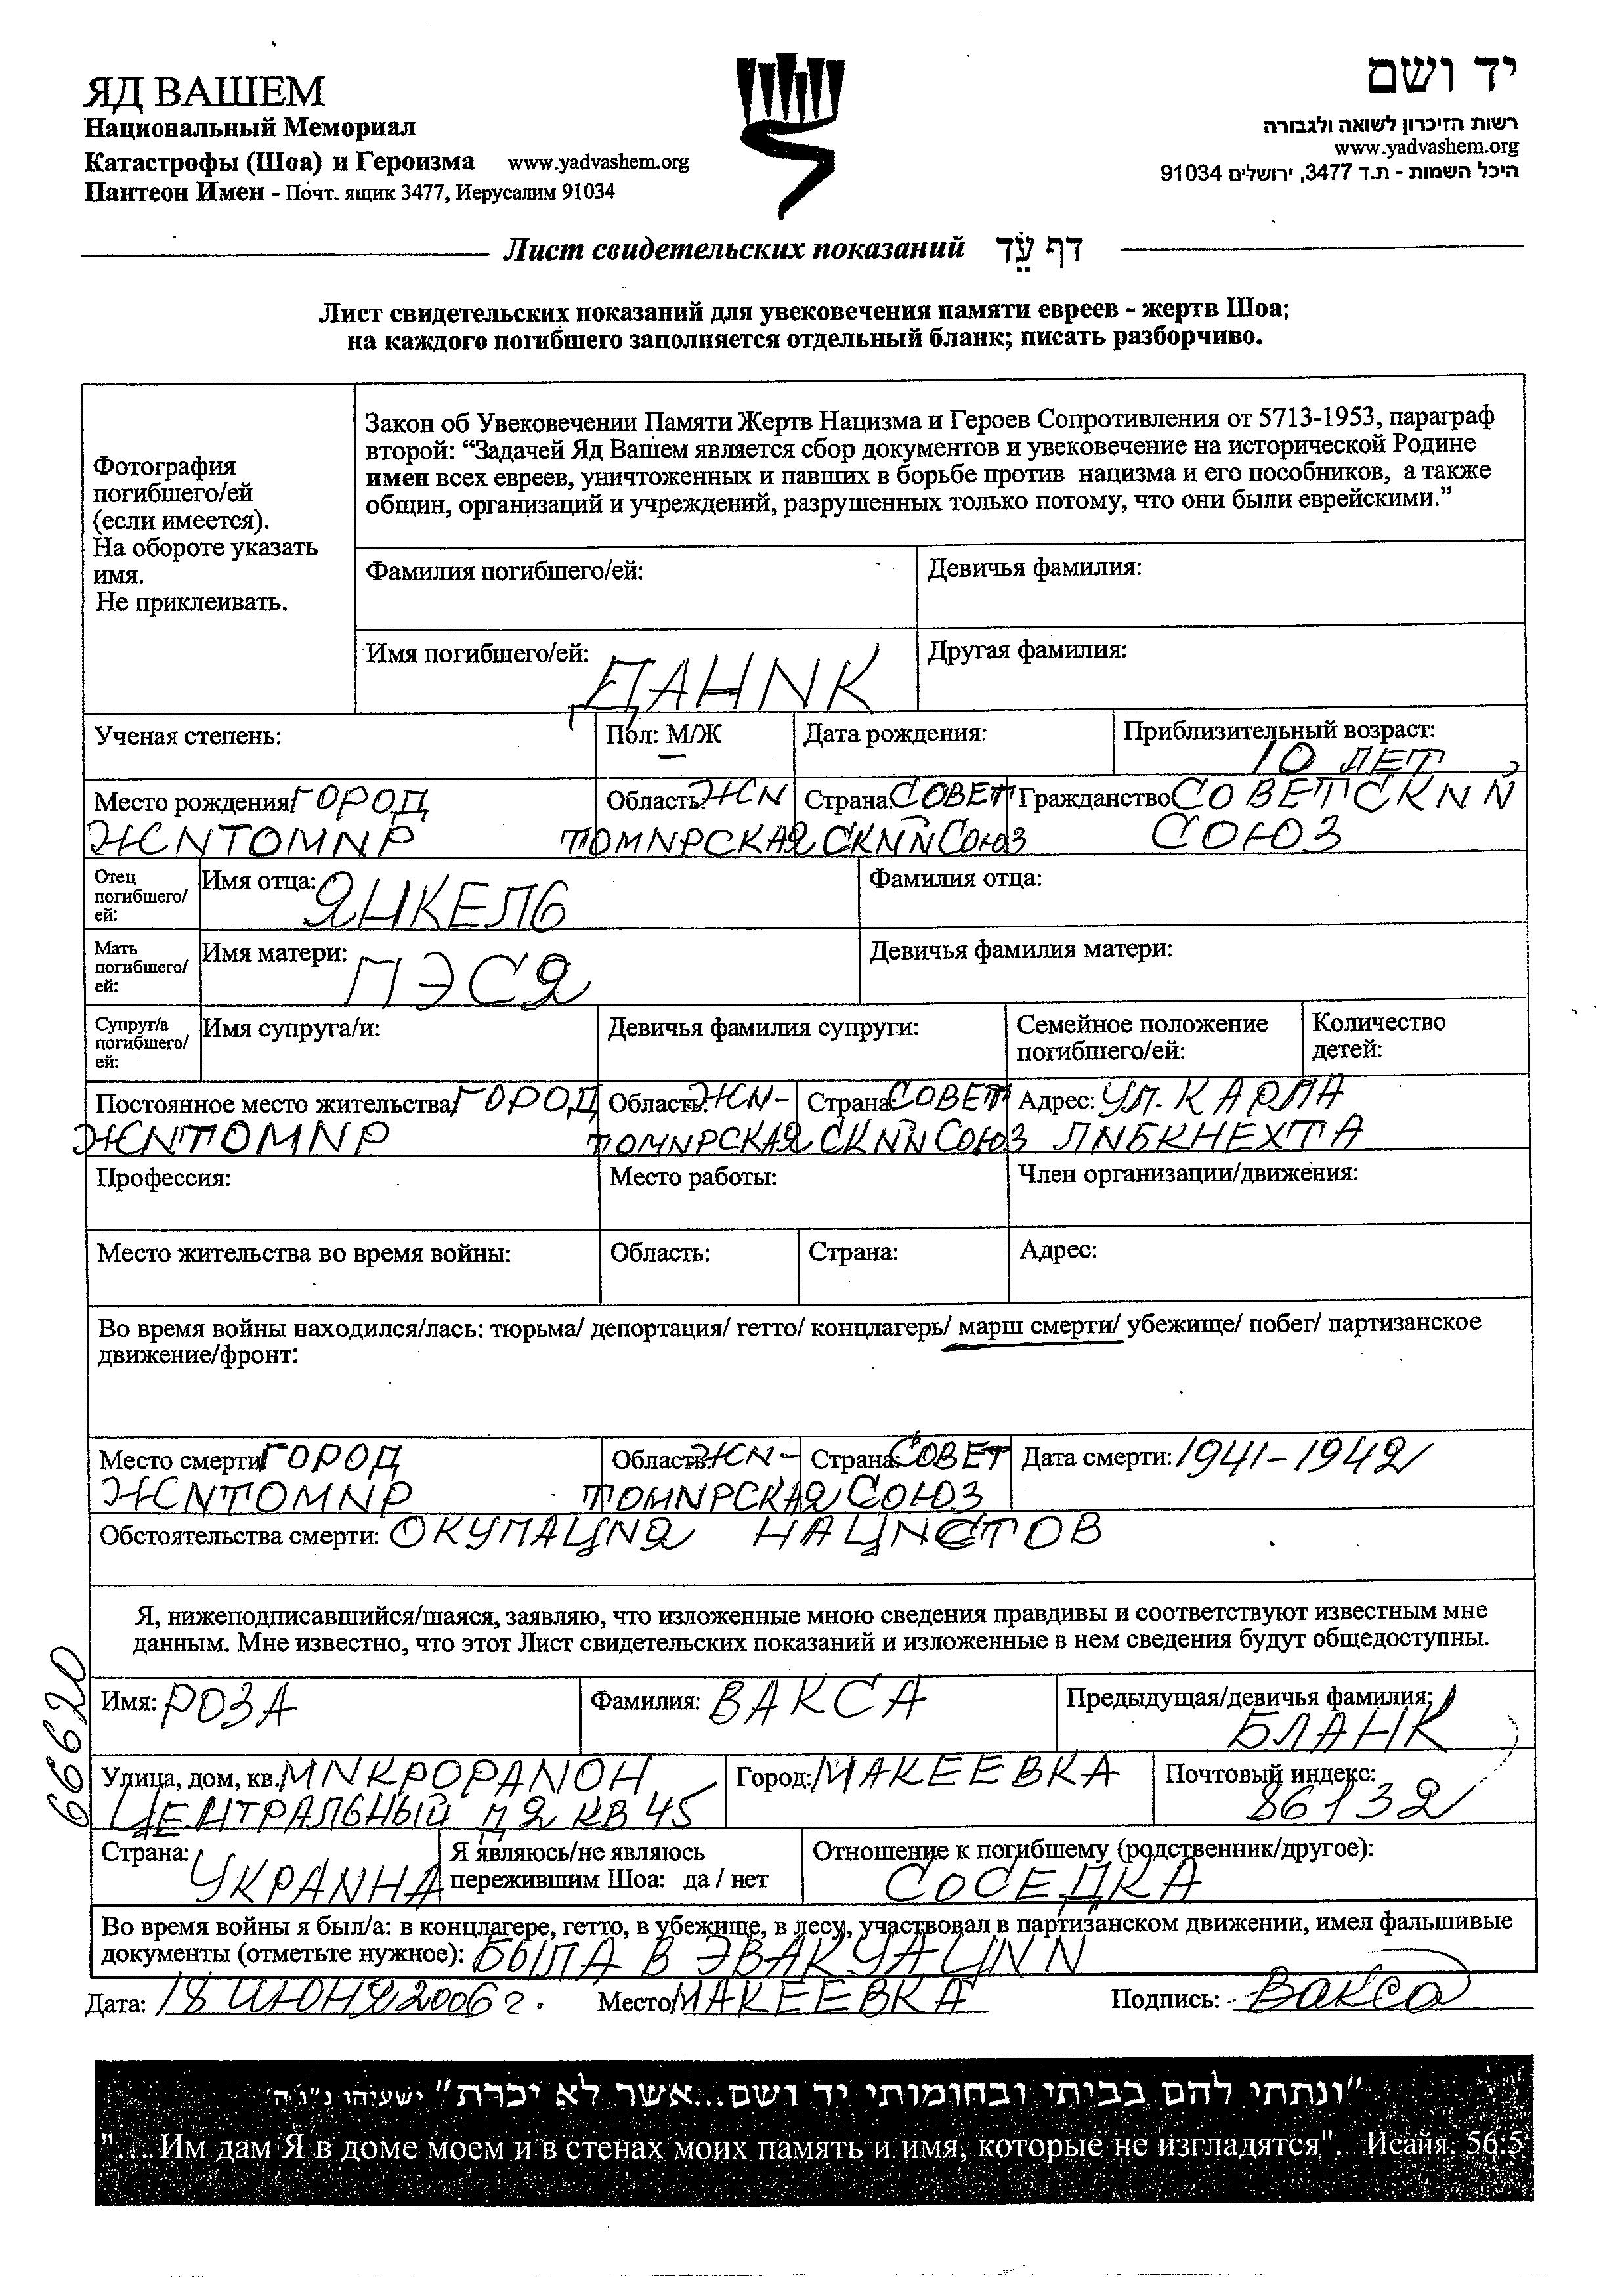 ЯД ВАШЕМ
Национальный Мемориал
Катастрофы (Шоа) и Героизма www.yadvashem.org
Пантеон Имен - Почт. ящик 3477, Иерусалим 91034
יד ושם
רשות הזיכרון לשואה ולגבורה
www.yadvashem.org
היכל השמות - ת.ד 3477, ירושלים 91034
Лист свидетельских показаний דף עֵד
Лист свидетельских показаний для увековечения памяти евреев - жертв Шоа;
на каждого погибшего заполняется отдельный бланк; писать разборчиво.
Фотография
погибшего/ей
(если имеется).
На обороте указать
имя.
Не приклеивать.
Закон об Увековечении Памяти Жертв Нацизма и Героев Сопротивления от 5713-1953, параграф
второй: “Задачей Яд Вашем является сбор документов и увековечение на исторической Родине
имен всех евреев, уничтоженных и павших в борьбе против нацизма и его пособников, а также
общин, организаций и учреждений, разрушенных только потому, что они были еврейскими.”
Фамилия погибшего/ей: Девичья фамилия:
Имя погибшего/ей: ДАНИК Другая фамилия:
Ученая степень: Пол: М/Ж Дата рождения: Приблизительный возраст:
10 ЛЕТ
Место рождения: ГОРОД Область: ЖИ Страна: СОВЕТ Гражданство: СОВЕТСКИЙ
ЖИТОМИР ТОМИРСКАЯ СКИЙ СОЮЗ СОЮЗ
Отец погибшего/ей: Имя отца: ЯНКЕЛЬ Фамилия отца:
Мать погибшего/ей: Имя матери: ПЭСЯ Девичья фамилия матери:
Супруг/а погибшего/ей: Имя супруга/и: Девичья фамилия супруги: Семейное положение погибшего/ей: Количество детей:
Постоянное место жительства: ГОРОД Область: ЖИ- Страна: СОВЕТ Адрес: УЛ. КАРЛА
ЖИТОМИР ТОМИРСКАЯ СКИЙ СОЮЗ ЛИБКНЕХТА
Профессия: Место работы: Член организации/движения:
Место жительства во время войны: Область: Страна: Адрес:
Во время войны находился/лась: тюрьма/ депортация/ гетто/ концлагерь/ марш смерти/ убежище/ побег/ партизанское
движение/фронт:
Место смерти: ГОРОД Область: ЖИ- Страна: СОВЕТ Дата смерти: 1941-1942
ЖИТОМИР ТОМИРСКАЯ СОЮЗ
Обстоятельства смерти: ОКУПАЦИЯ НАЦИСТОВ
Я, нижеподписавшийся/шаяся, заявляю, что изложенные мною сведения правдивы и соответствуют известным мне
данным. Мне известно, что этот Лист свидетельских показаний и изложенные в нем сведения будут общедоступны.
66620
Имя: РОЗА Фамилия: ВАКСА Предыдущая/девичья фамилия:
БЛАНК
Улица, дом, кв.: МИКРОРАИОН Город: МАКЕЕВКА Почтовый индекс:
ЦЕНТРАЛЬНЫЙ Д 2 КВ 45 86132
Страна: УКРАИНА Я являюсь/не являюсь
пережившим Шоа: да / нет
Отношение к погибшему (родственник/другое):
СОСЕДКА
Во время войны я был/а: в концлагере, гетто, в убежище, в лесу, участвовал в партизанском движении, имел фальшивые
документы (отметьте нужное): БЫЛА В ЭВАКУАЦИИ
Дата: 18 ИЮНЯ 2006 г. Место: МАКЕЕВКА Подпись: Вакса
"ונתתי להם בביתי ובחומותי יד ושם...אשר לא יכרת" ישעיהו נ"ו ה'
"....Им дам Я в доме моем и в стенах моих память и имя, которые не изгладятся". Исайя. 56:5